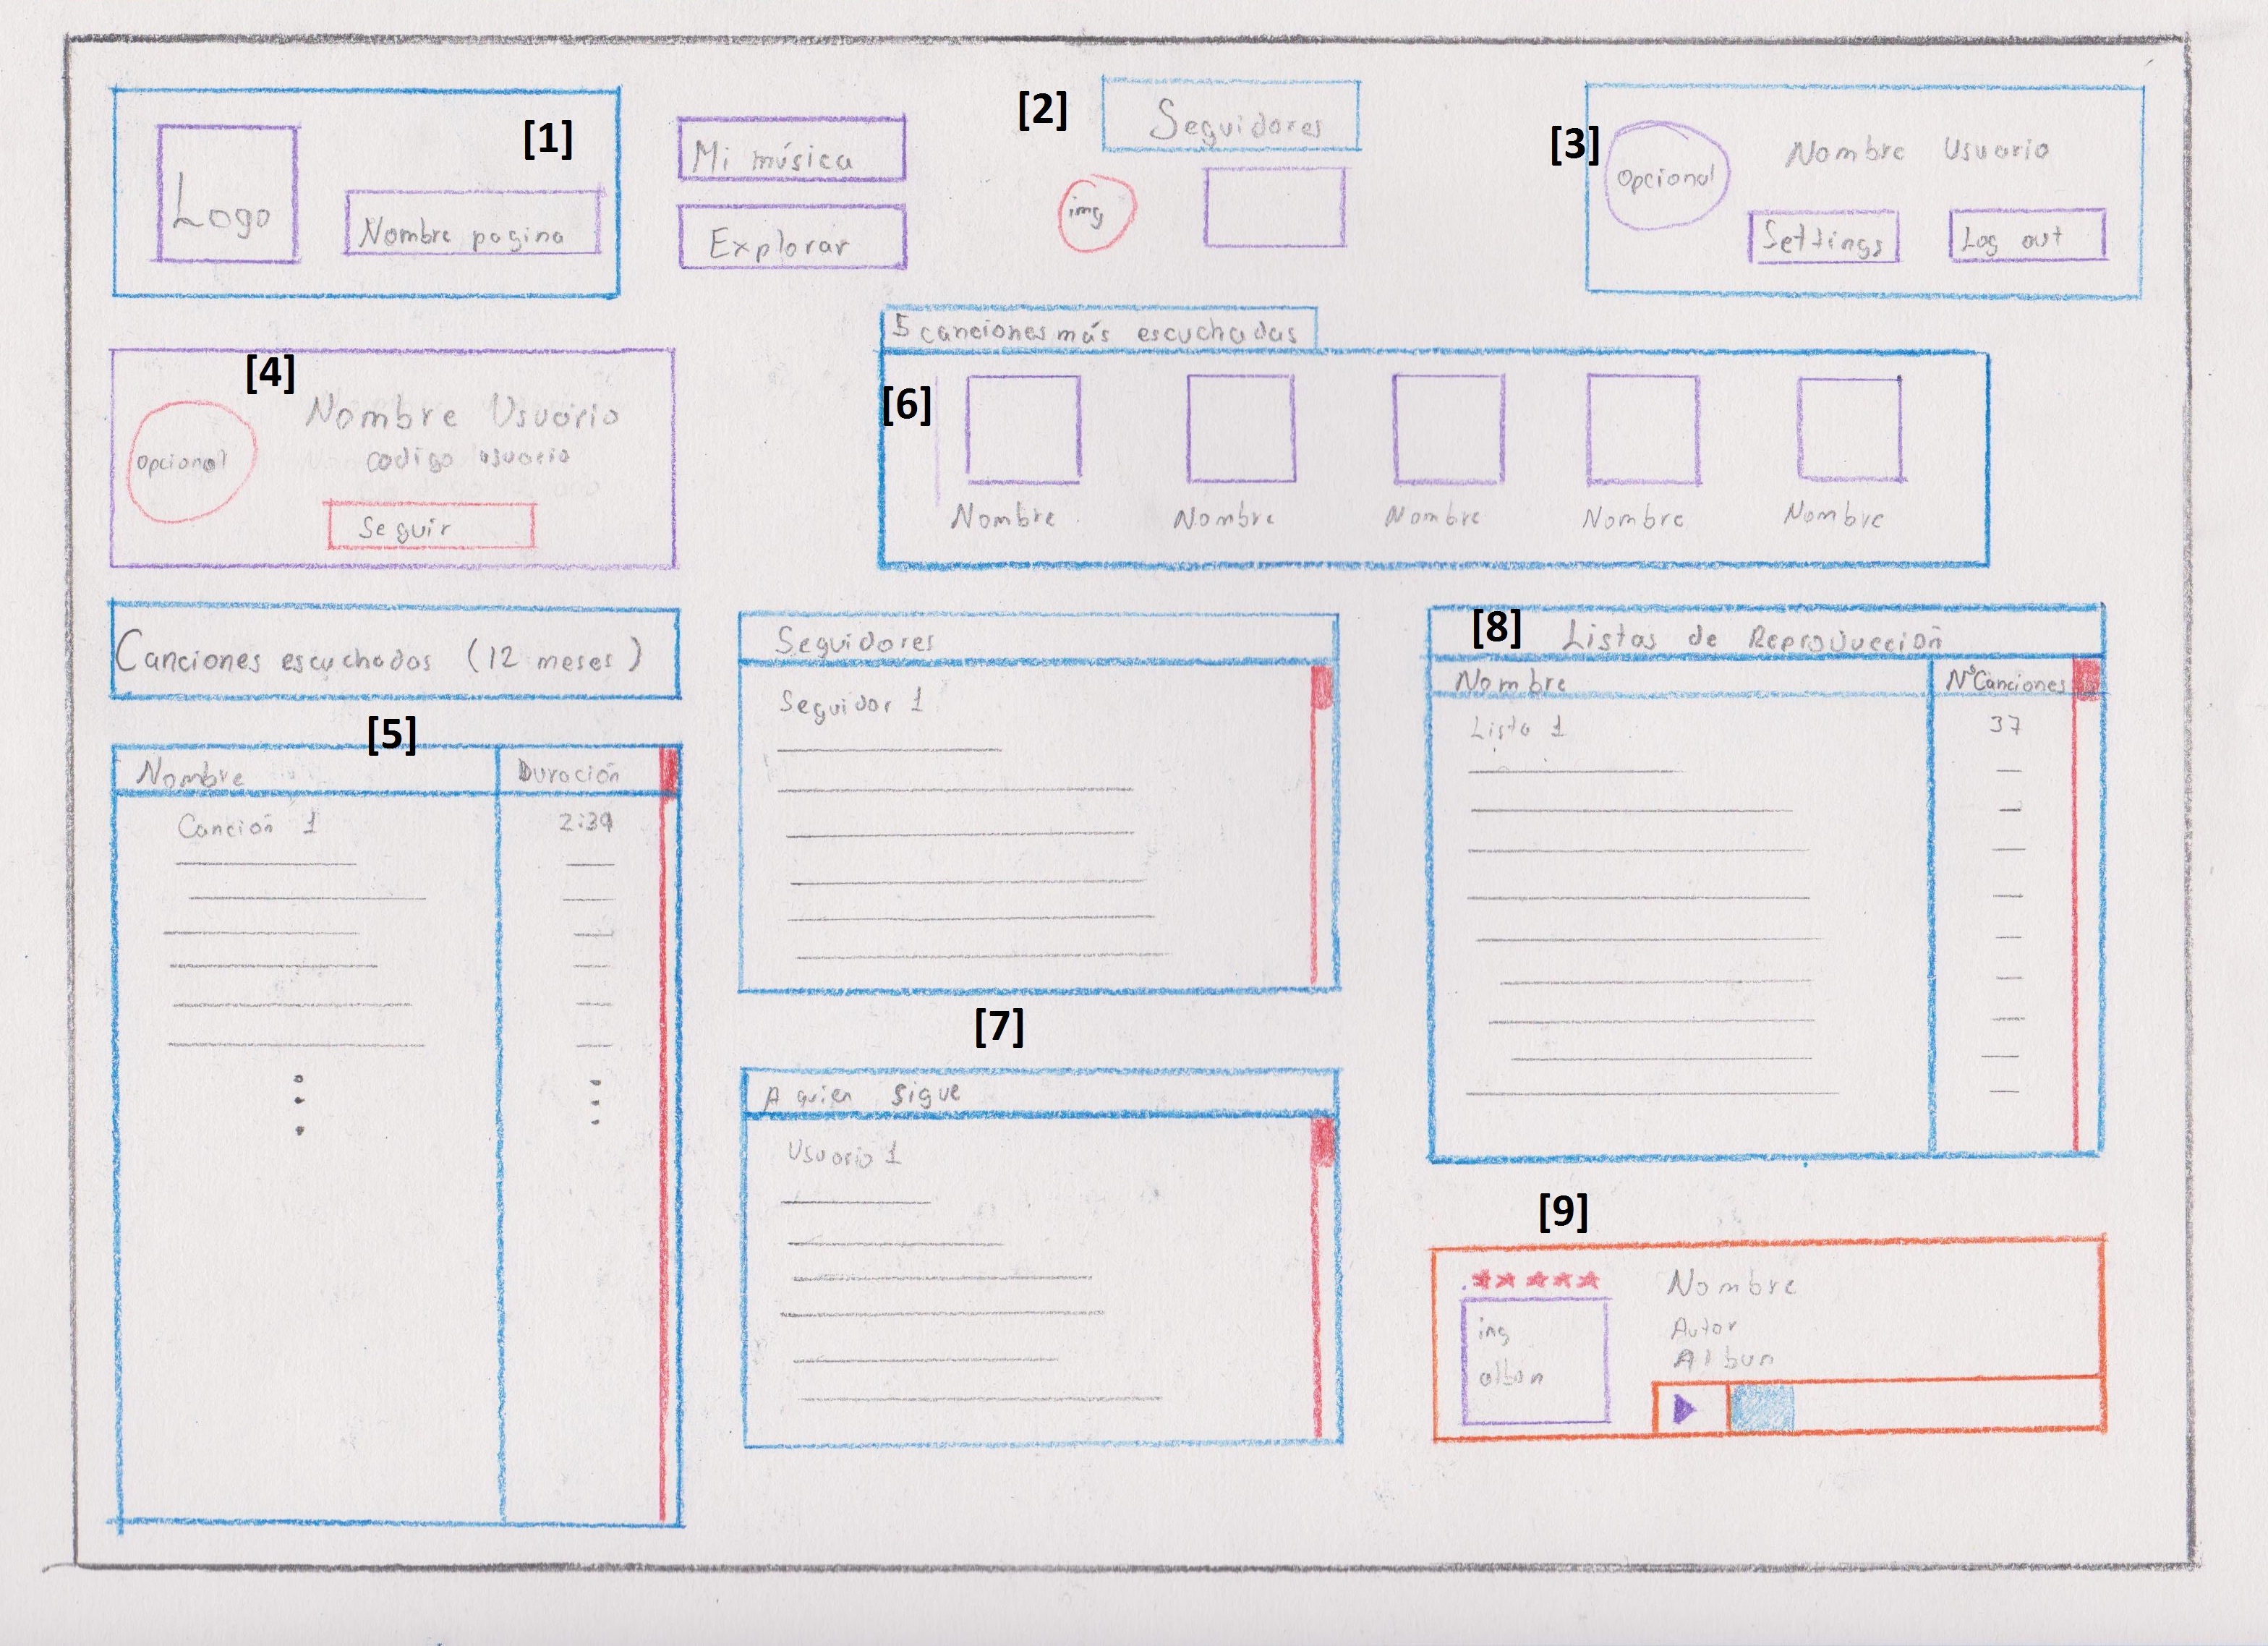 [1]
Logo
Nombre pagina
Mi música
Explorar
[2]
Seguidores
img
[3]
Opcional
Nombre Usuario
Settings
Log out
[4]
opcional
Nombre Usuario
codigo usuario
Seguir
5 canciones más escuchadas
[6]
Nombre
Nombre
Nombre
Nombre
Nombre
Canciones escuchadas (12 meses)
[5]
Nombre Duración
Canción 1 2:34
Seguidores
Seguidor 1
[7]
A quien sigue
Usuario 1
[8]
Listas de Reproducción
Nombre NºCanciones
Lista 1 37
[9]
Nombre
Autor
Album
img
album